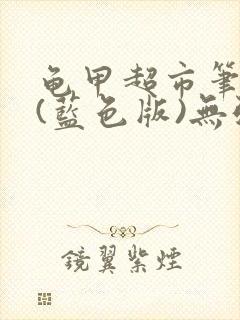 龟甲超市筆
(藍色版)無
鏡翼紫煙